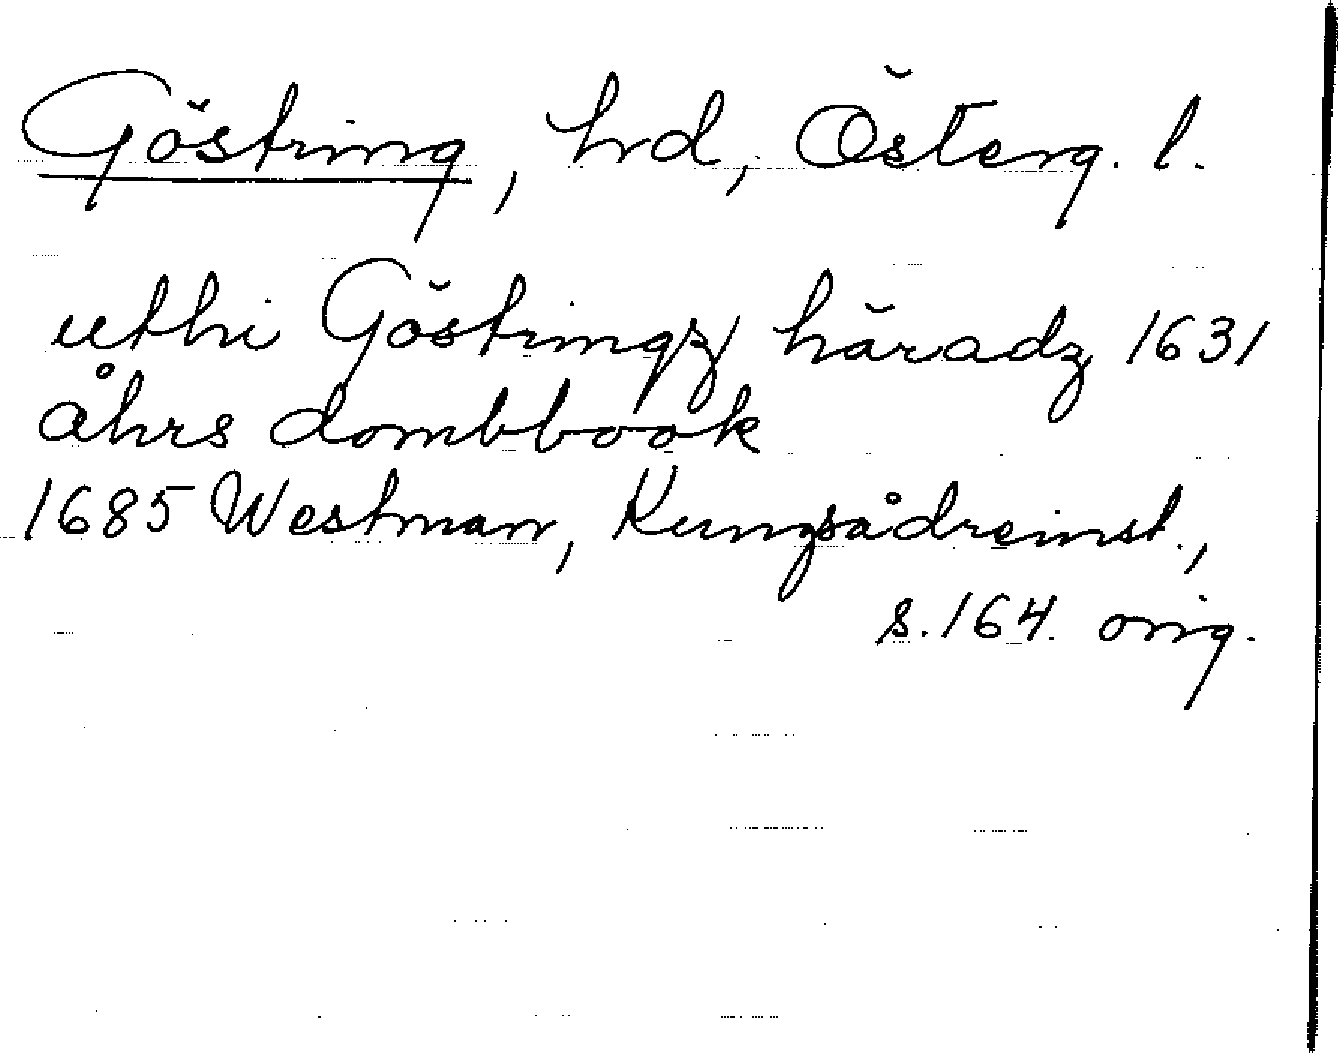 Göstring, hrd, Österg. l.
uthi Göstingz häradz 1631
åhrs dombbook
1685 Westman, Kungsådreinst.,
s. 164. orig.